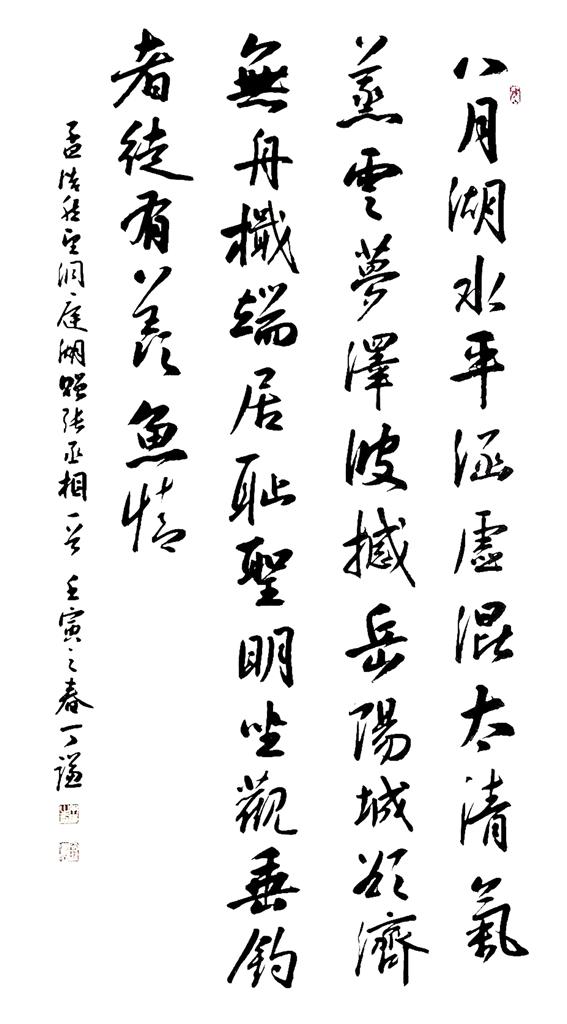 八月湖水平涵虛混太清氣
蒸雲夢澤波撼岳陽城欲濟
無舟檝端居恥聖明坐觀垂釣
者徒有羨魚情
孟浩然望洞庭湖贈張丞相一首 壬寅之春丁謙